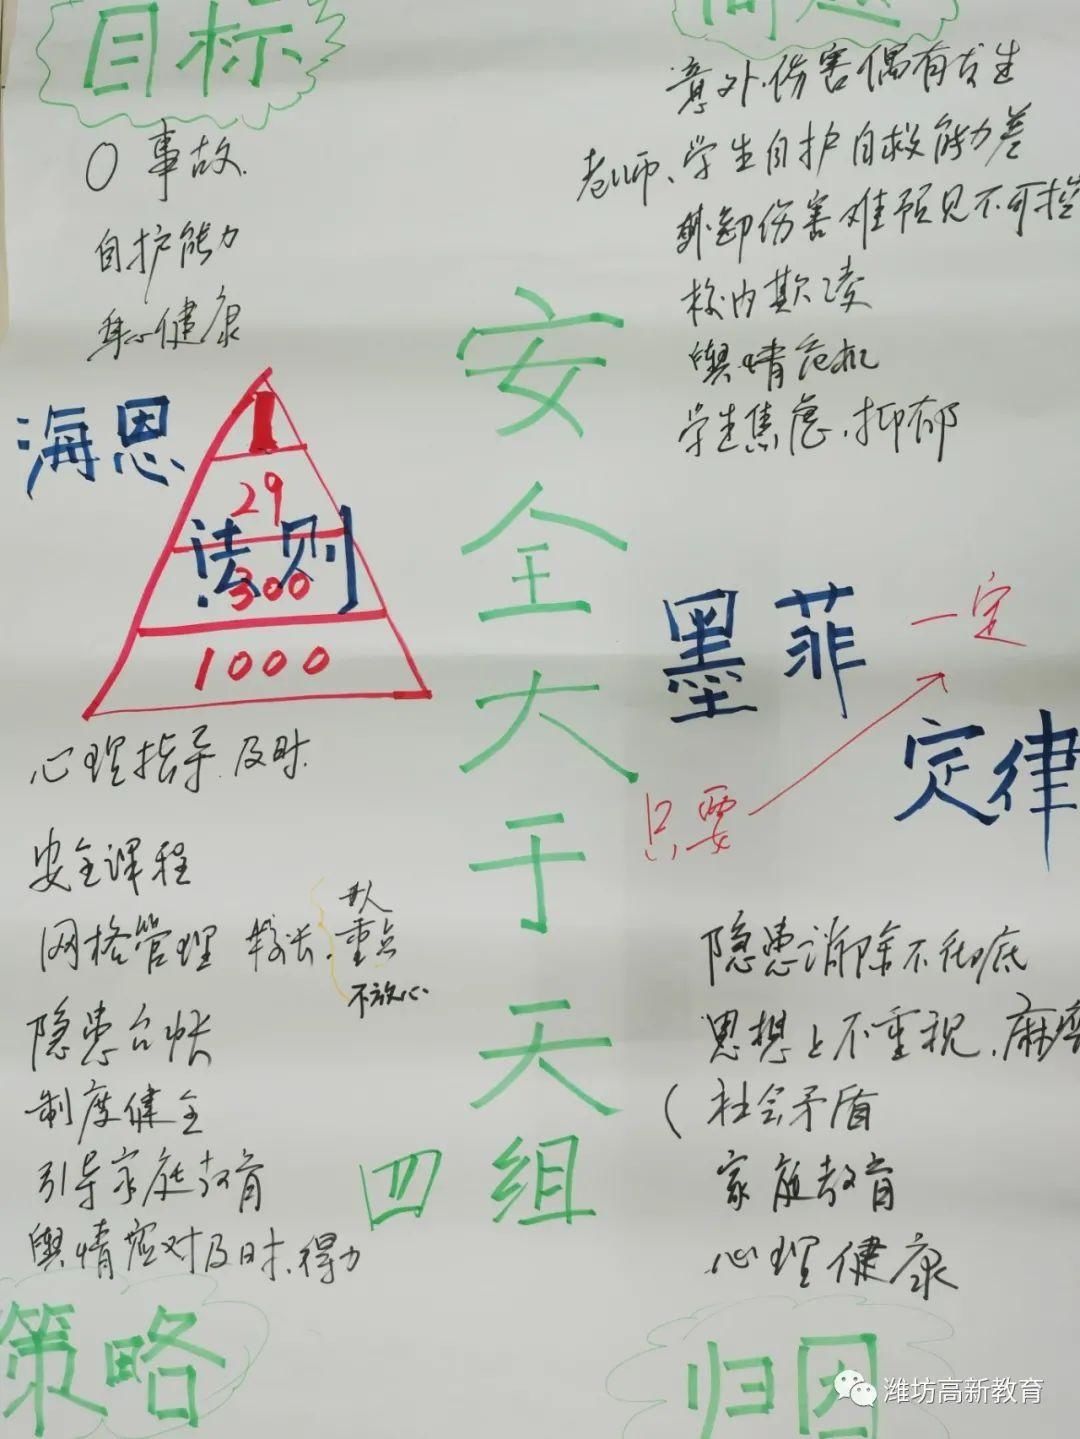 目标
O事故
自护能力
身心健康
问题
意外伤害偶有发生
老师、学生自护自救能力差
伤害难预见不可控
校内欺凌
舆情危机
学生焦虑、抑郁
海恩
法则
1
29
300
1000
安全大于天
四组
墨菲
定律
只要
一定
心理指导及时
安全课程
网格管理 校长、
重点
不放心
隐患台帐
制度健全
引导家庭教育
舆情应对及时、得力
策略
隐患消除不彻底
思想上不重视、麻痹
(社会矛盾
家庭教育
心理健康
归因
潍坊高新教育